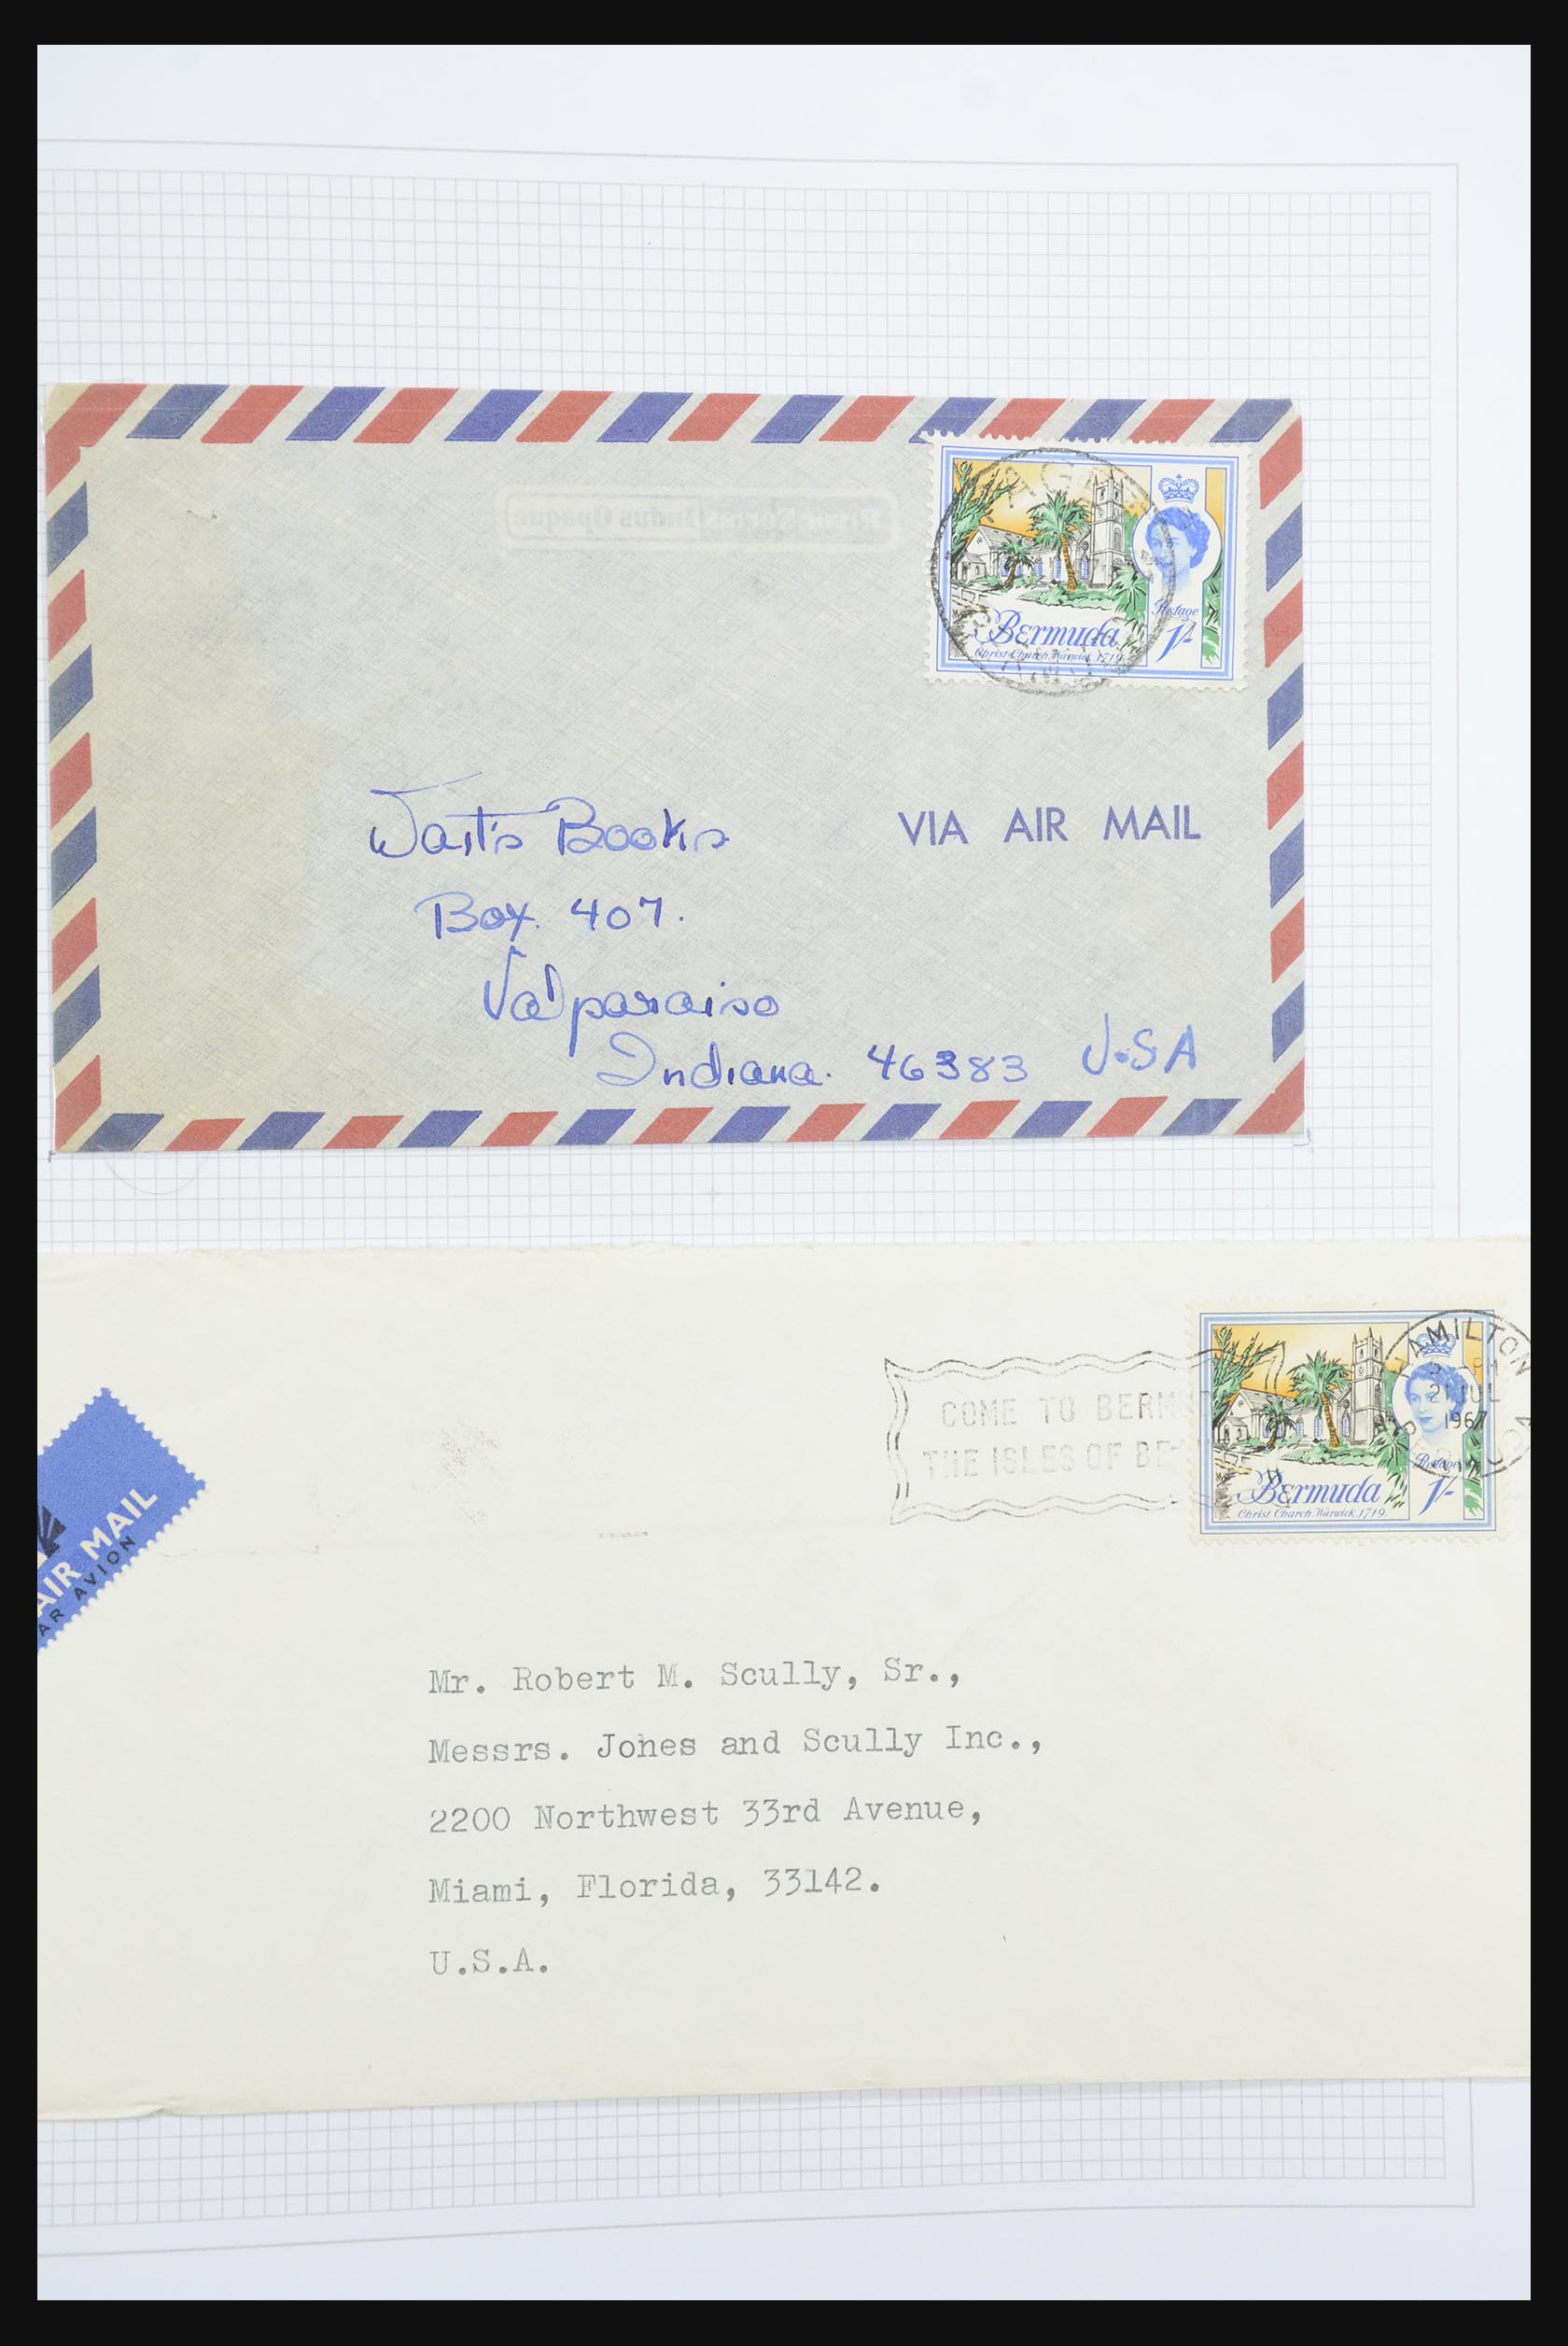 Indus Opaque
Bermuda
Christ Church, Warwick, 1719.
Postage
1/-
Wait's Books
VIA AIR MAIL
Box. 407.
Valparaiso
Indiana. 46383 U.S.A
HAMILTON
21 JUL
1967
COME TO
THE ISLES OF
Bermuda
Christ Church, Warwick, 1719.
Postage
1/-
AIR MAIL
AR AVION
Mr. Robert M. Scully, Sr.,
Messrs. Jones and Scully Inc.,
2200 Northwest 33rd Avenue,
Miami, Florida, 33142.
U.S.A.